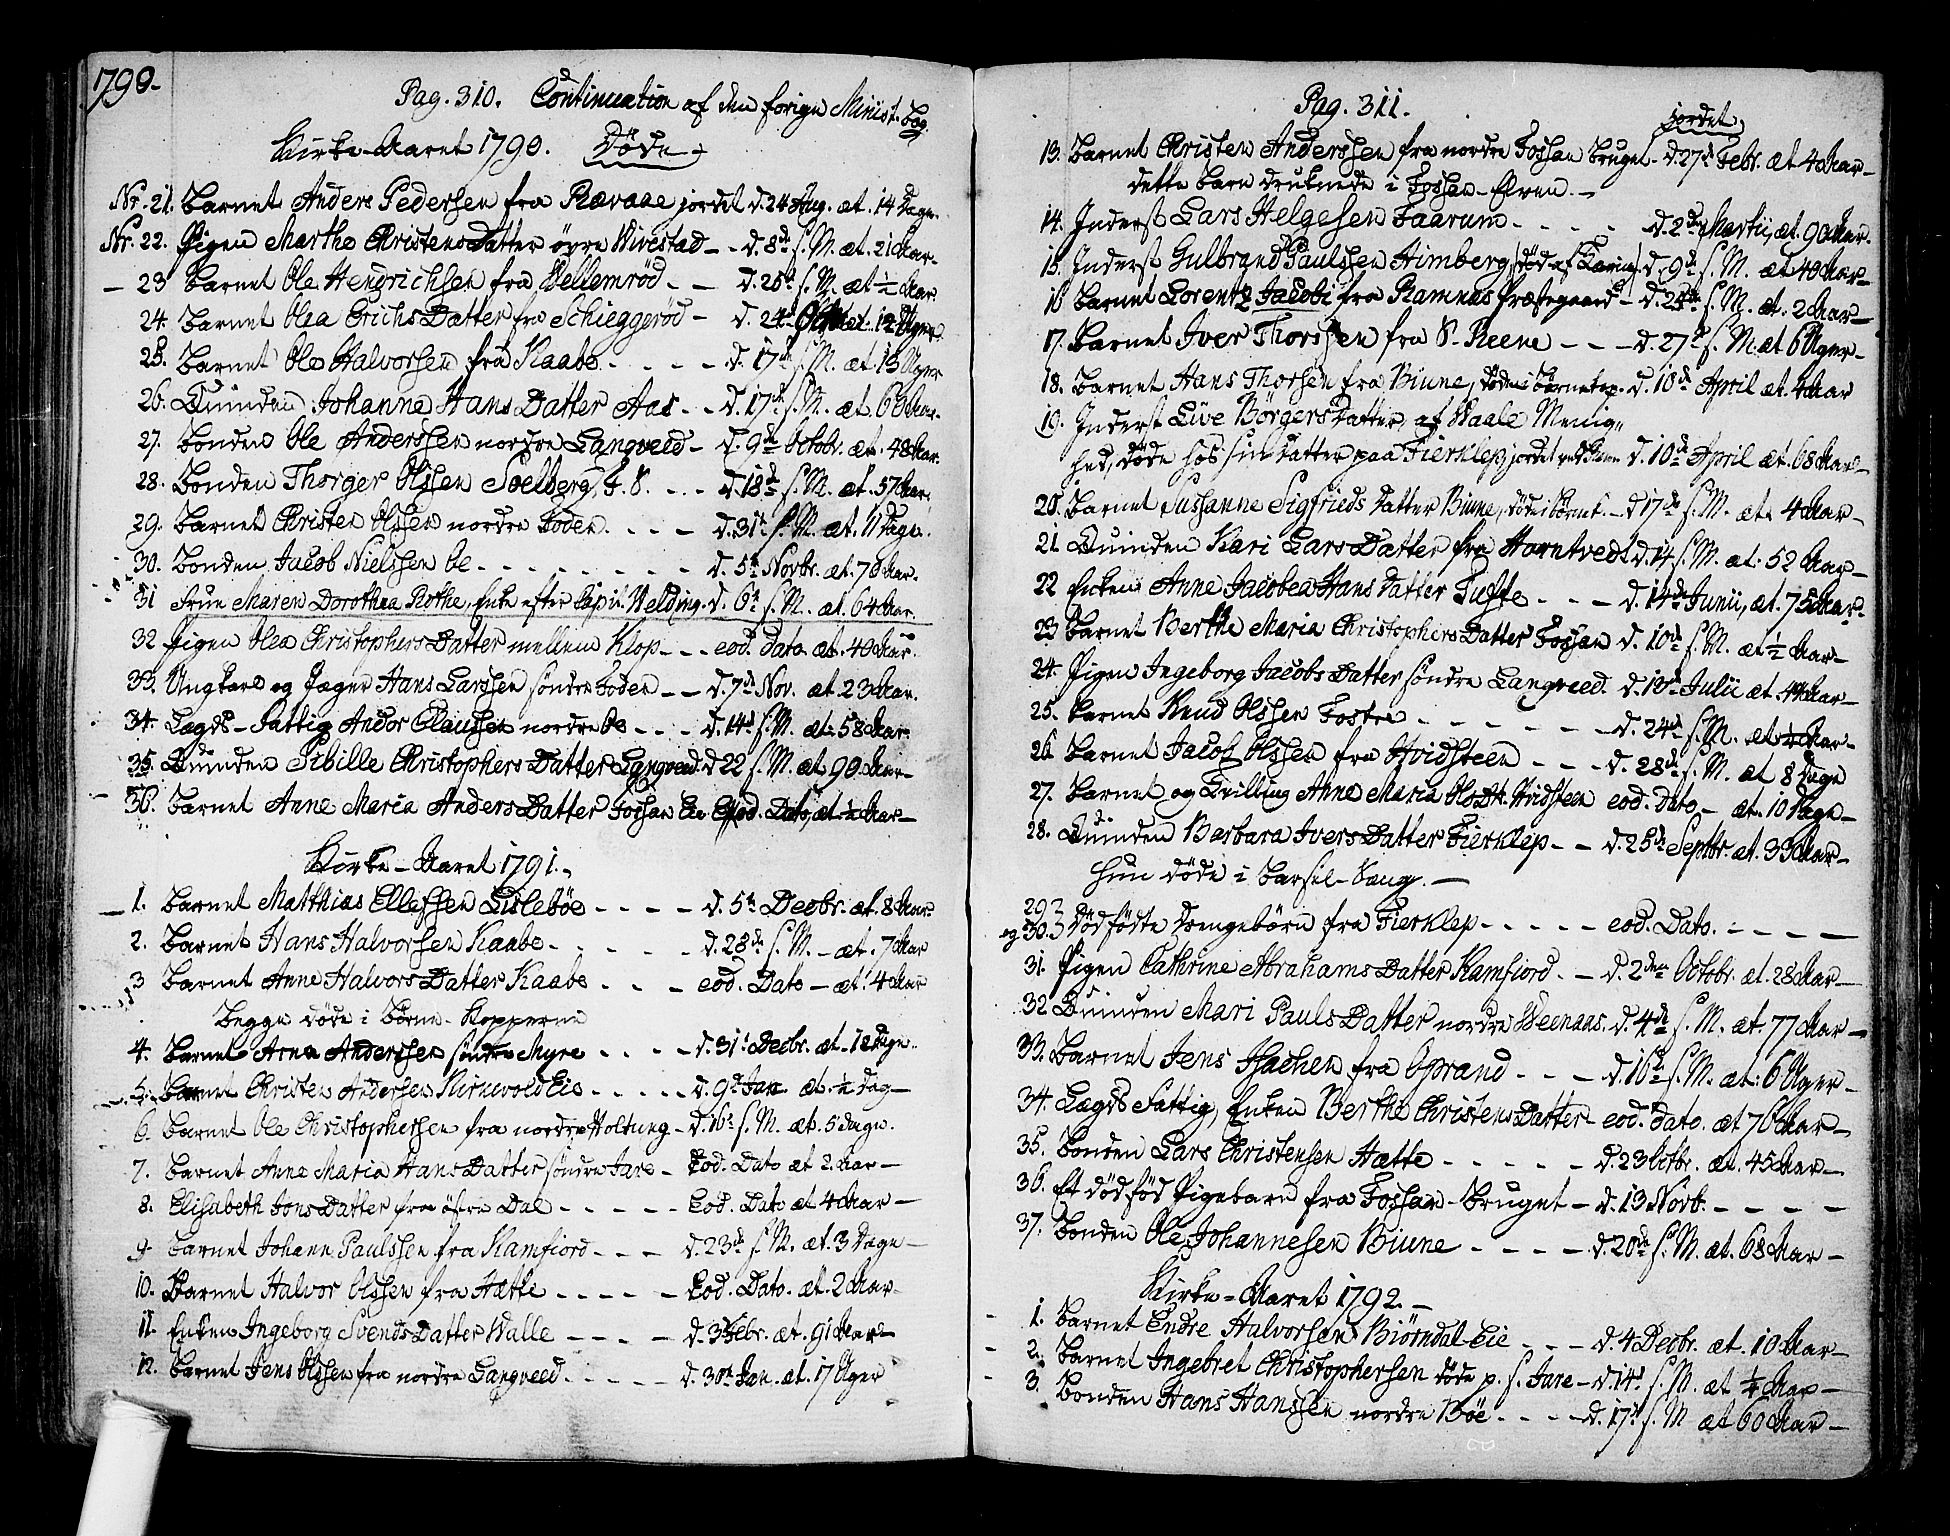 1790.
Pag. 310. Continuation af den forige Minist. Bog.
Kirke-Aaret 1790. Døde
Nr. 21. Barnet Anders Pedersen fra Rævaae jordet d. 24 Aug. æt. 14 Dage.
Nr. 22. Pigen Marthe ChristensDatter øvre Wirestad - - d. 8de s. M. æt. 21 Aar.
23 Barnet Ole Hengrichsen fra Wellemrød - - d. 25t s. M. æt ½ Aar
24. Barnet Olea ErichsDatter fra Schieggerød - d. 24d æt. 12 Uger
25. Barnet Ole Halvorsen fra Kaabe - - - - d. 17de s. M. æt 13 Uger
26. Quinden Johanne HansDatter Aas - - d. 17de s. M. æt. 66 Aar.
27. Bonden Ole Anderssen nordre Langveed - d. 9de Octobr. æt. 48 Aar.
28. Bonden Thorger Olssen Soelberg, F. S. - - - d. 18de s. M. æt. 57 Aar.
29. Barnet Christen Olssen nordre Foden - - - d. 31t s. M. æt. 11 Dage.
30. Bonden Jacob Nielssen Bø - - - - - - - - d. 5te Novbr. æt. 70 Aar.
31 Frue Maren Dorothea Rothe, Enke efter Capit. Welding - d. 6te s. M. æt. 64 Aar.
32 Pigen Olea ChristophersDatter mellem Klop - - - eod. Dato æt. 40 Aar.
33. Ungkarl og Jæger Hans Larssen søndre Foden - - d. 7de Nov. æt. 23 Aar.
34. Lægds-Fattig Andor Claussen nordre Bø - - - d. 14d s. M. æt. 58 Aar.
35. Quinden Sibille ChristophersDatter Langveed d. 22 s. M. æt. 90 Aar -
36. Barnet Anne Maria AndersDatter Fossan Eie Eod. Dato, æt. ½ Aar -
Kirke-Aaret 1791.
1. Barnet Matthias Ellefsen Lislebøe - - - - d. 5te Decbr. æt. 8 Aar
2. Barnet Hans Halvorsen Kaabe - - - - - d. 28de s. M. - æt. 7 Aar
3 Barnet Anne HalvorsDatter Kaabe - - - eod. Dato - æt. 4 Aar
Begge døde i Børne-Kopperne
4. Barnet Arne Anderssen søndre Myre - - - - d. 31t Decbr. æt. 12 Dage.
5. Barnet Christen Andersen Kirkevold Eie - - - - - d. 9d Jan. æt. ½ Dag -
6. Barnet Ole Christophersen fra nordre Holtung - d. 16t s. M. æt. 5 Dage.
7. Barnet Anne Maria HansDatter søndre Jare - Eod. Dato æt 2 Aar -
8. Elisabeth JonsDatter fra østre Dal - - - - - Eod. Dato æt 4 Aar -
9. Barnet Johann Paulssen fra Kamfiord - - - d. 23de s. M. æt. 3 Dage -
10. Barnet Halvor Olssen fra Hætte - - - - - Eod. Dato. æt. 2 Aar -
11. Enken Ingeborg SvendsDatter Walle - - - - d. 3 Febr. æt. 91 Aar -
12. Barnet Jens Olssen fra nordre Langveed - - - - - d. 30te Jan. æt. 17 Uger
Pag. 311.
jordet
13. Barnet Christen Anderssen fra nordre Fossan Bruget - d. 27de Febr. æt 4 Aar -
dette Barn druknede i Fossan-Elven. -
14. Inderst Lars Helgesen Faarum - - - - - d. 2den Martii, æt. 90 Aar.
15. Inderst Gulbrand Paulssen Himberg, død af d. 9de s. M. æt 40 Aar -
16 Barnet Lorentz Jacobi fra Ramnæs Præstegaard - d. 25de s. M. æt. 2 Aar -
17. Barnet Iver Thorssen fra S. Reene - - - d. 27de s. M. æt 6 Uger -
18. Barnet Hans Thorsen fra Biune, døde i Børnekop. d. 10de April æt. 4 Aar
19. Inderst Live BörgersDatter, af Waale Menig-
hed, døde hos sin Datter paa Fierklep, jordet ved d. 10de April æt. 68 Aar -
20. Barnet Sussanne SigfriedsDatter Biune, døde i Børnek. - d 17de s. M. æt. 4 Aar -
21. Quinden Kari LarsDatter fra Horntvedt d. 14 s. M. æt. 52 Aar -
22 Enken Anne Jacobea HansDatter Tufte - - - d. 14de Junii, æt. 75 Aar.
23 Barnet Berthe Maria ChristophersDatter Fossan d. 10de s. M. æt ½ Aar -
24. Pigen Ingeborg JacobsDatter søndre Langveed. d. 13de Julii æt. 44 Aar -
25. Barnet Knud Olssen Fostre - - - - - - - - d. 24de s. M. æt ¼ Aar -
26 Barnet Jacob Olssen fra Hvidsteen - - - - d. 28de s. M. æt 8 Dage
27. Barnet og Tvilling Anne Maria OlsDtr. Hvidsteen eod. Dato - æt. 10 Dage -
28. Quinden Barbara IversDatter Fierklep - - d. 25de Septbr æt. 33 Aar -
Hun døde i Barsel-Seng. -
29
og 30. Dødfødte Drengebørn fra Fierklep - - - - - eod. Dato. - - - - -
31. Pigen Cathrine AbrahamsDatter Kamfiord. - - d. 2den Octobr. æt. 28 Aar -
32 Quinden Mari PaulsDatter nordre Weenaas. d. 4de s. M. æt. 77 Aar -
33. Barnet Jens Isachen fra Oprand - - - d. 16de s. M. æt: 6 Uger -
34. Lægds Fattig, Enken Berthe ChristensDatter - eod. Dato. æt 70 Aar -
35. Bonden Lars Christensen Hætte - - - - - d. 23 Octbr. æt. 45 Aar -
36. Et dødfød Pigebarn fra Fossan-Bruget - d. 13 Novb. - - - -
37. Bonden Ole Johannesen Biune - - - - d. 20de s. M. æt. 68 Aar -
Kirke-Aaret 1792. -
1. Barnet Endre Halvorssen Biørndal-Eie - - - d. 4 Decbr. æt. 10 Aar -
2. Barnet Ingebret Christophersen døde p. s. Jare - d. 14d s. M. æt ¼ Aar -
3. Bonden Hans Hanssen nordre Bøe - - - - d. 17de s. M æt 60 Aar -